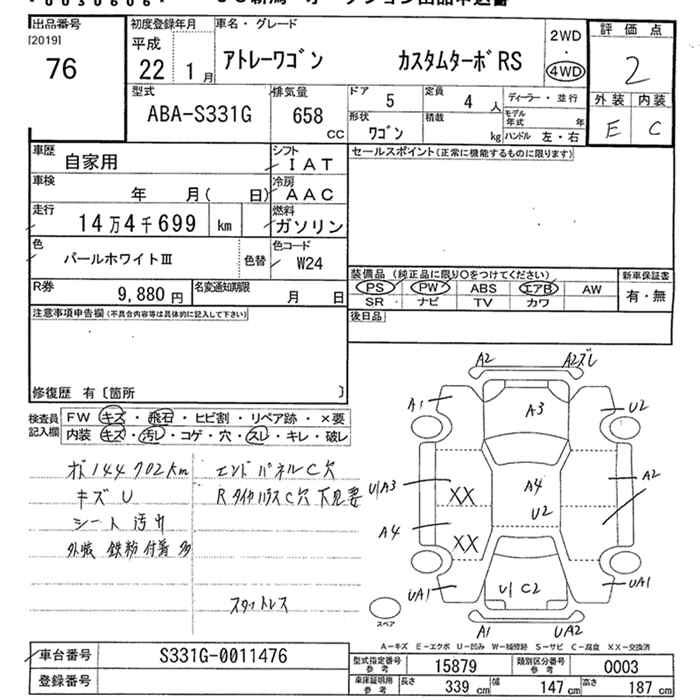 出品番号
[2019]
76
初度登録年月
平成
22 1 月
車名・グレード
アトレーワゴン カスタムターボRS
2WD
・
4WD
評価点
2
外装 内装
E C
型式
ABA-S331G
排気量
658
CC
ドア
5
定員
4 人
ディーラー・並行
形状
ワゴン
積載
kg
モデル年式 年
ハンドル 左・右
車歴
自家用
シフト
IAT
車検
年 月( 日)
冷房
AAC
走行
14万4千699 km
燃料
ガソリン
色
パールホワイトⅢ
色替
色コード
W24
R券
9,880 円
名変通知期限
月 日
セールスポイント(正常に機能するものに限ります)
装備品 (純正品に限り○をつけてください)
PS PW ABS エアB AW
SR ナビ TV カワ
新車保証書
有・無
後日品
注意事項申告欄(不具合内容等は具体的に記入して下さい)
修復歴 有〔箇所 〕
検査員記入欄
FW キズ・飛石・ヒビ割・リペア跡・×要
内装 キズ・汚レ・コゲ・穴・スレ・キレ・破レ
144702km
キズ U
シート 汚れ
外装 鉄粉付着 多
エンドパネルC穴
RタイヤハウスC穴 下見要
スタットレス
A2 A2ズレ
A1 A3 U2
U/A3 XX A4 A2
U2
A4 XX
UA1 U/C2 UA1
A1 UA2
スペア
A-キズ E-エクボ U-凹み W-補修跡 S-サビ C-腐食 XX-交換済
車台番号
S331G-0011476
登録番号
型式指定番号
参考
15879
類別区分番号
参考
0003
車庫証明用
参考
長さ 339 cm 幅 147 cm 高さ 187 cm